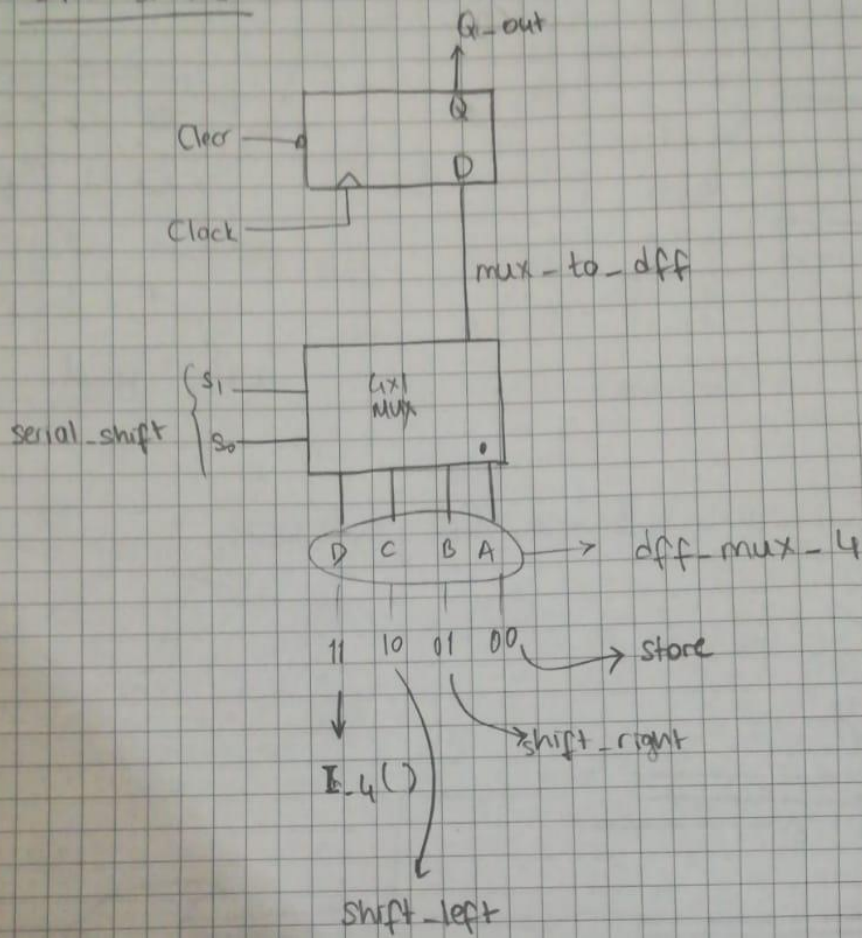 Q_out
Q
Clear
D
Clock
mux_to_dff
S1
4x1
MUX
serial_shift
S0
D C B A
dff_mux_4
11 10 01 00
store
shift_right
I_4()
shift_left